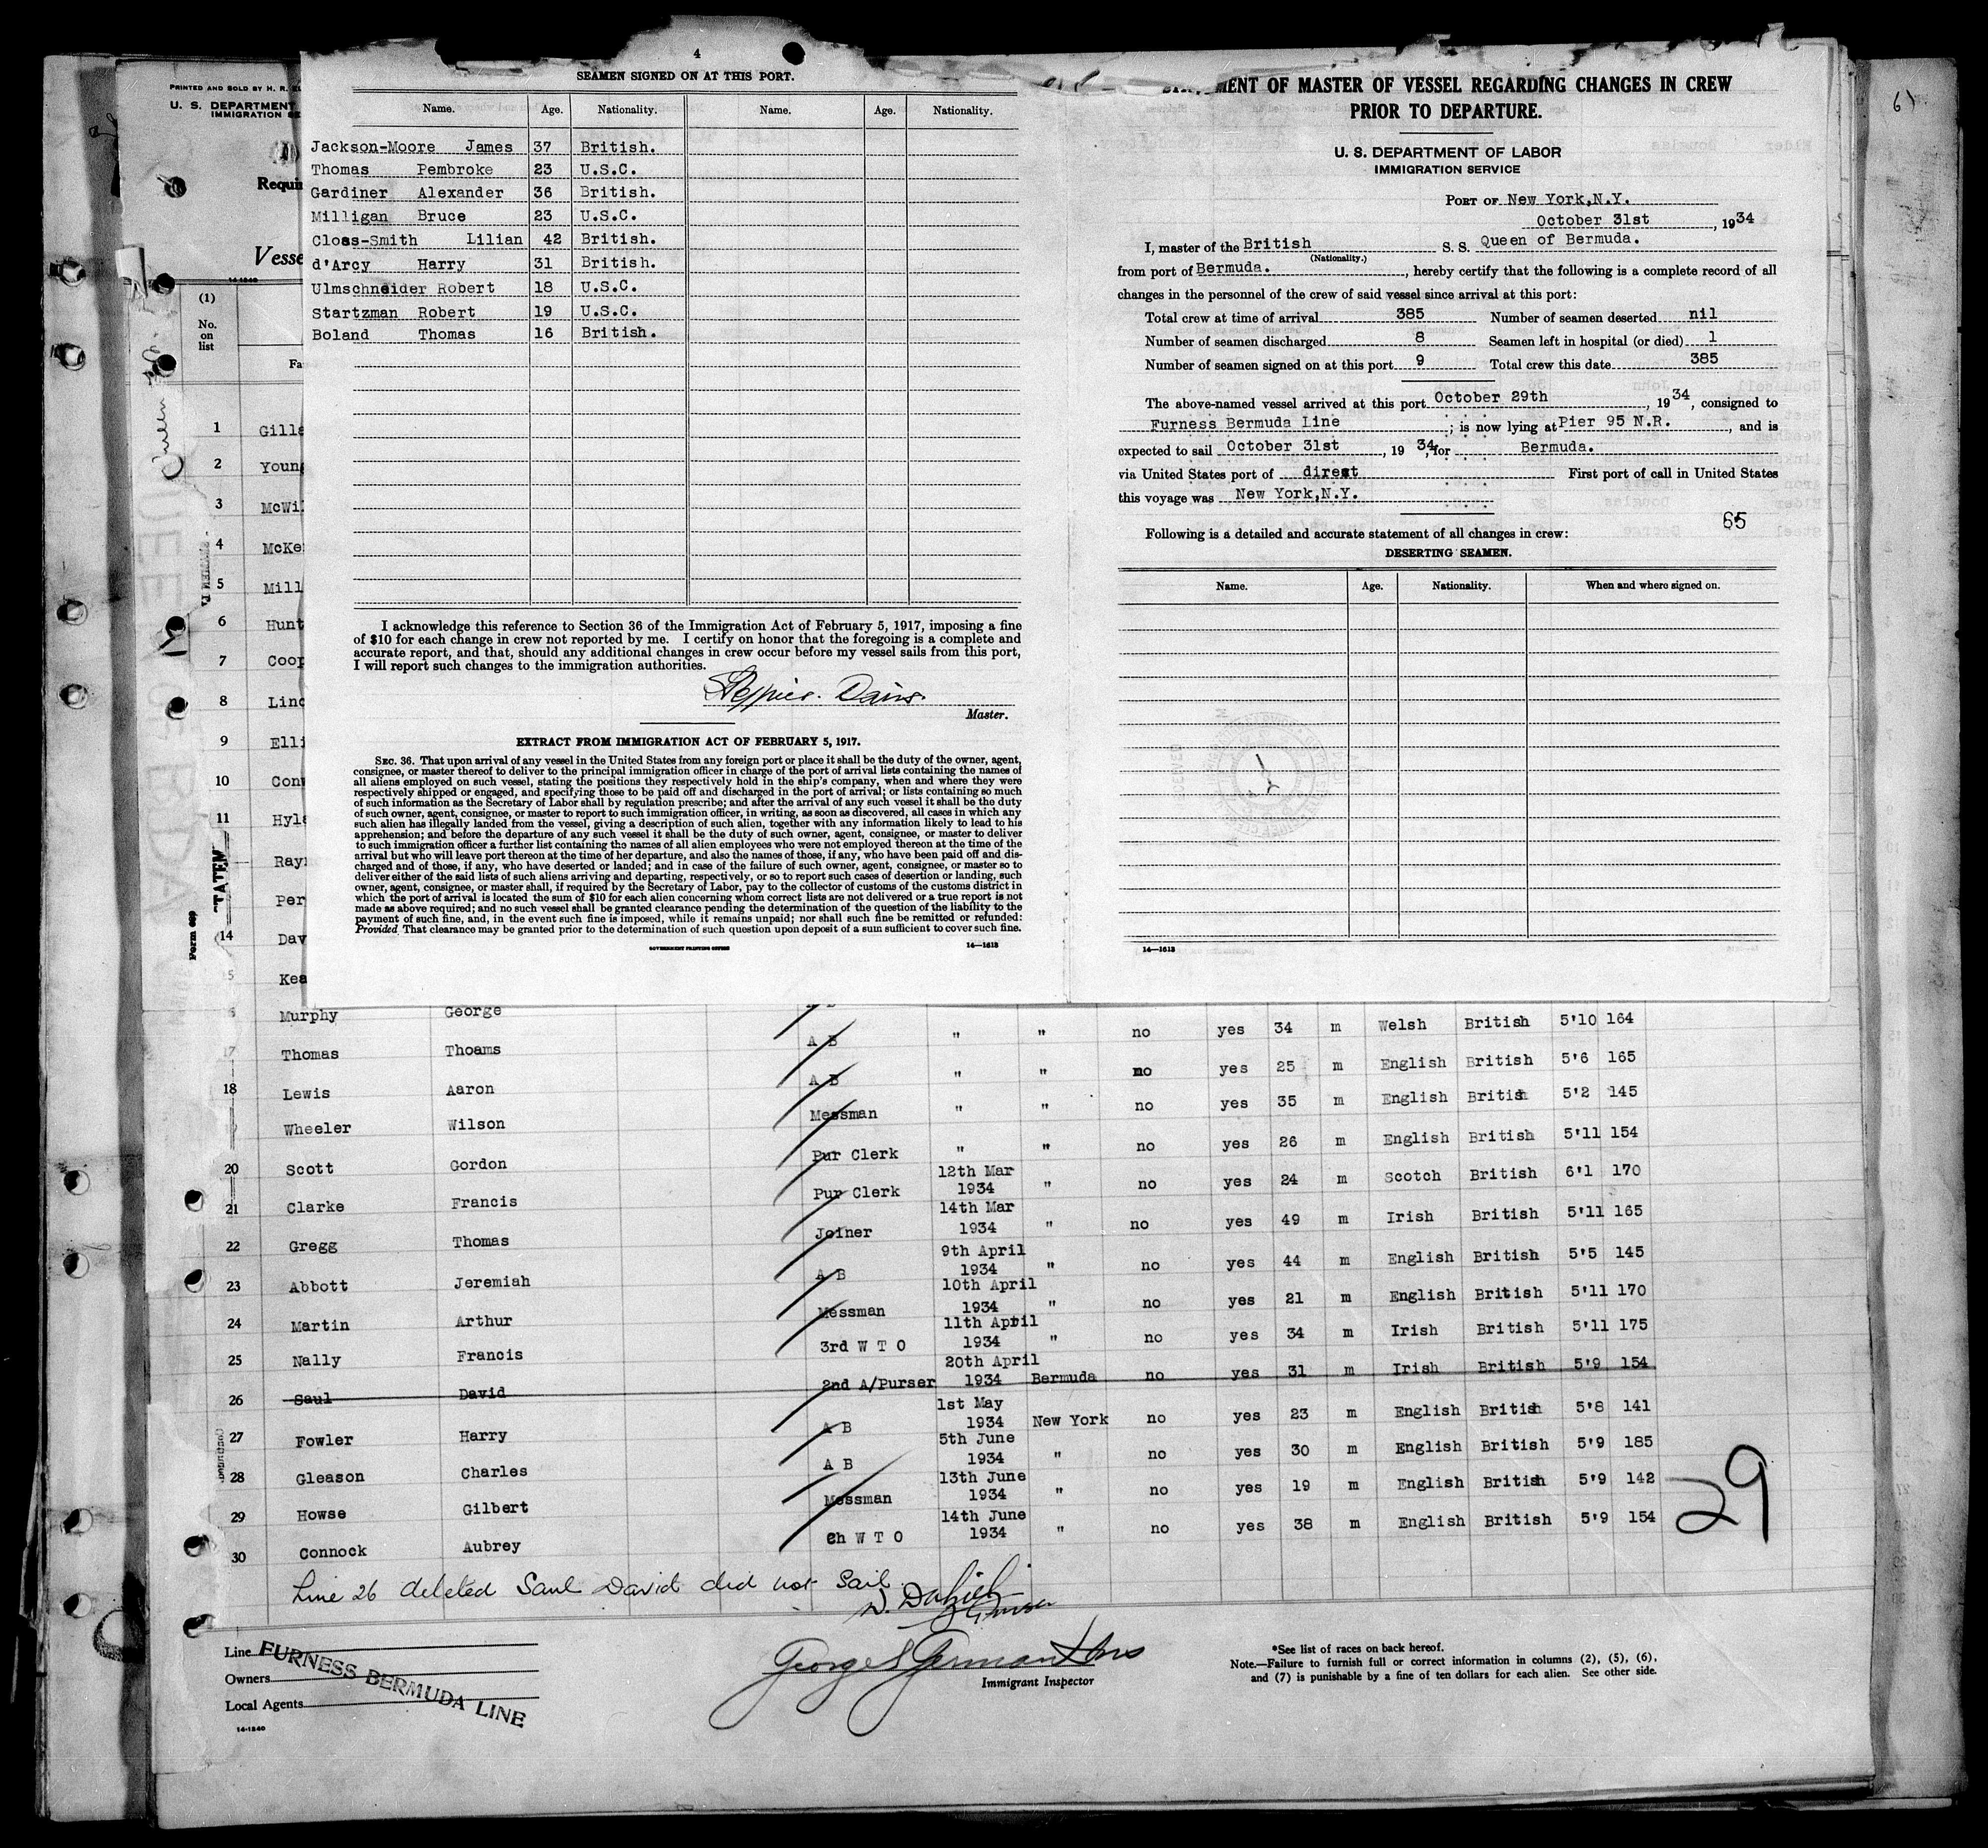 4
SEAMEN SIGNED ON AT THIS PORT.
Name. Age. Nationality. Name. Age. Nationality.
Jackson-Moore James 37 British.
Thomas Pembroke 23 U.S.C.
Gardiner Alexander 36 British.
Milligan Bruce 23 U.S.C.
Closs-Smith Lilian 42 British.
d'Arcy Harry 31 British.
Ulmschneider Robert 18 U.S.C.
Startzman Robert 19 U.S.C.
Boland Thomas 16 British.
I acknowledge this reference to Section 36 of the Immigration Act of February 5, 1917, imposing a fine
of $10 for each change in crew not reported by me. I certify on honor that the foregoing is a complete and
accurate report, and that, should any additional changes in crew occur before my vessel sails from this port,
I will report such changes to the immigration authorities.
Davis.
Master.
EXTRACT FROM IMMIGRATION ACT OF FEBRUARY 5, 1917.
SEC. 36. That upon arrival of any vessel in the United States from any foreign port or place it shall be the duty of the owner, agent,
consignee, or master thereof to deliver to the principal immigration officer in charge of the port of arrival lists containing the names of
all aliens employed on such vessel, stating the positions they respectively hold in the ship's company, when and where they were
respectively shipped or engaged, and specifying those to be paid off and discharged in the port of arrival; or lists containing so much
of such information as the Secretary of Labor shall by regulation prescribe; and after the arrival of any such vessel it shall be the duty
of such owner, agent, consignee, or master to report to such immigration officer, in writing, as soon as discovered, all cases in which any
such alien has illegally landed from the vessel, giving a description of such alien, together with any information likely to lead to his
apprehension; and before the departure of any such vessel it shall be the duty of such owner, agent, consignee, or master to deliver
to such immigration officer a further list containing the names of all alien employees who were not employed thereon at the time of the
arrival but who will leave port thereon at the time of her departure, and also the names of those, if any, who have been paid off and dis-
charged and of those, if any, who have deserted or landed; and in case of the failure of such owner, agent, consignee, or master so to
deliver either of the said lists of such aliens arriving and departing, respectively, or so to report such cases of desertion or landing, such
owner, agent, consignee, or master shall, if required by the Secretary of Labor, pay to the collector of customs of the customs district in
which the port of arrival is located the sum of $10 for each alien concerning whom correct lists are not delivered or a true report is not
made as above required; and no such vessel shall be granted clearance pending the determination of the question of the liability to the
payment of such fine, and, in the event such fine is imposed, while it remains unpaid; nor shall such fine be remitted or refunded:
Provided That clearance may be granted prior to the determination of such question upon deposit of a sum sufficient to cover such fine.
GOVERNMENT PRINTING OFFICE 14—1613
MENT OF MASTER OF VESSEL REGARDING CHANGES IN CREW
PRIOR TO DEPARTURE.
U. S. DEPARTMENT OF LABOR
IMMIGRATION SERVICE
PORT OF New York,N.Y.
October 31st, 1934
I, master of the British S. S. Queen of Bermuda.
(Nationality.)
from port of Bermuda., hereby certify that the following is a complete record of all
changes in the personnel of the crew of said vessel since arrival at this port:
Total crew at time of arrival 385 Number of seamen deserted nil
Number of seamen discharged 8 Seamen left in hospital (or died) 1
Number of seamen signed on at this port 9 Total crew this date 385
The above-named vessel arrived at this port October 29th, 1934, consigned to
Furness Bermuda Line; is now lying at Pier 95 N.R., and is
expected to sail October 31st, 1934, for Bermuda.
via United States port of direct First port of call in United States
this voyage was New York,N.Y.
65
Following is a detailed and accurate statement of all changes in crew:
DESERTING SEAMEN.
Name. Age. Nationality. When and where signed on.
14—1613
61
PRINTED AND SOLD BY H. R.
U. S. DEPARTMENT
IMMIGRATION SE
Requi
Vesse
14-1240
(1)
No.
on
list
Fa
1 Gills
2 Young
3 McWil
4 McKe
5 Mill
6 Hunt
7 Coop
8 Linc
9 Elli
10 Con
11 Hyl
Ray
Per
14 Dav
5 Kea
STATEM
Form 689
6 Murphy George " " no yes 34 m Welsh British 5'10 164
17 Thomas Thoams A B " " no yes 25 m English British 5'6 165
18 Lewis Aaron A B " " no yes 35 m English British 5'2 145
Wheeler Wilson Messman " " no yes 26 m English British 5'11 154
20 Scott Gordon Pur Clerk 12th Mar 1934 " no yes 24 m Scotch British 6'1 170
21 Clarke Francis Pur Clerk 14th Mar 1934 " no yes 49 m Irish British 5'11 165
22 Gregg Thomas Joiner 9th April 1934 " no yes 44 m English British 5'5 145
23 Abbott Jeremiah A B 10th April 1934 " no yes 21 m English British 5'11 170
24 Martin Arthur Messman 11th April 1934 " no yes 34 m Irish British 5'11 175
25 Nally Francis 3rd W T O 20th April 1934 Bermuda no yes 31 m Irish British 5'9 154
26 Saul David 2nd A/Purser 1st May 1934 New York no yes 23 m English British 5'8 141
27 Fowler Harry A B 5th June 1934 " no yes 30 m English British 5'9 185
28 Gleason Charles A B 13th June 1934 " no yes 19 m English British 5'9 142
29 Howse Gilbert Messman 14th June 1934 " no yes 38 m English British 5'9 154
30 Connock Aubrey Ch W T O
29
Line 26 deleted Saul David did not Sail.
Purser
Line FURNESS BERMUDA LINE
Owners
Local Agents
14-1240
Immigrant Inspector
*See list of races on back hereof.
Note.—Failure to furnish full or correct information in columns (2), (5), (6),
and (7) is punishable by a fine of ten dollars for each alien. See other side.